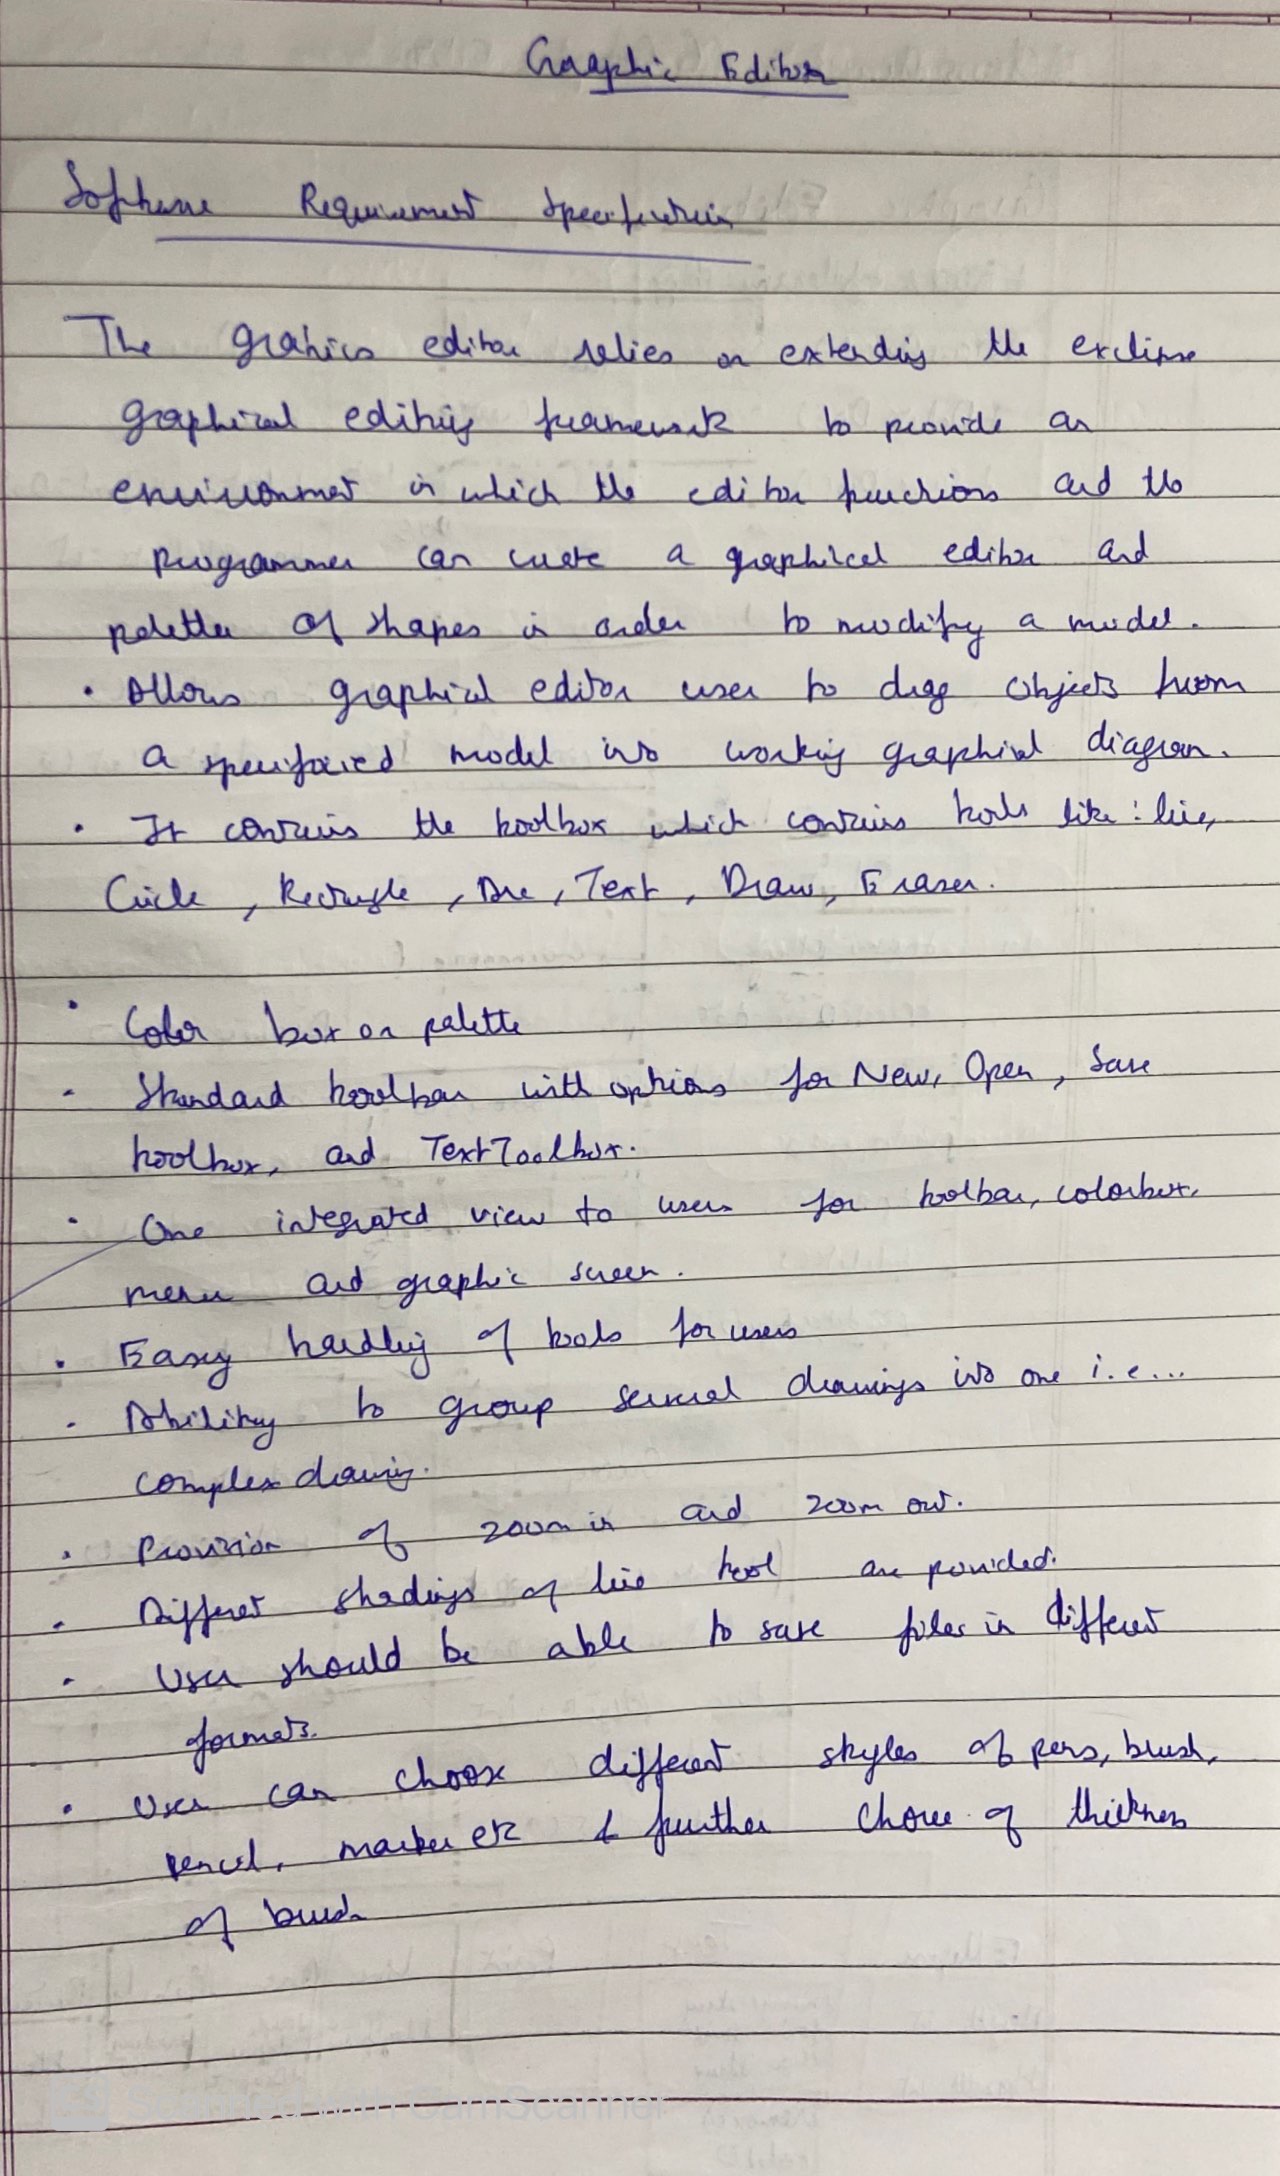 Graphic Editor
Software Requirement Specification
The grahics editor relies on extending the exclipse
graphical editing framework to provide an
environment in which the editor functions and the
programmer can create a graphical editor and
palettes of shapes in order to modify a model.
• Allows graphical editor user to drag objects from
a specified model into working graphical diagram.
• It contains the toolbox which contains tools like : line,
Circle, Rectangle, Arc, Text, Draw, Eraser.
• Color box or palette
• Standard toolbar with options for New, Open, Save
toolbox, and TextToolbox.
• One integrated view to users for toolbar, colorbox,
menu and graphic screen.
• Easy handling of tools for users
• Ability to group several drawings into one i.e...
complex drawing.
• Provision of zoom in and zoom out.
• Different shadings of line tool are provided.
• User should be able to save files in different
formats.
• User can choose different styles of pens, brush,
pencil, marker etc & further choice of thickness
of brush
Scanned with CamScanner